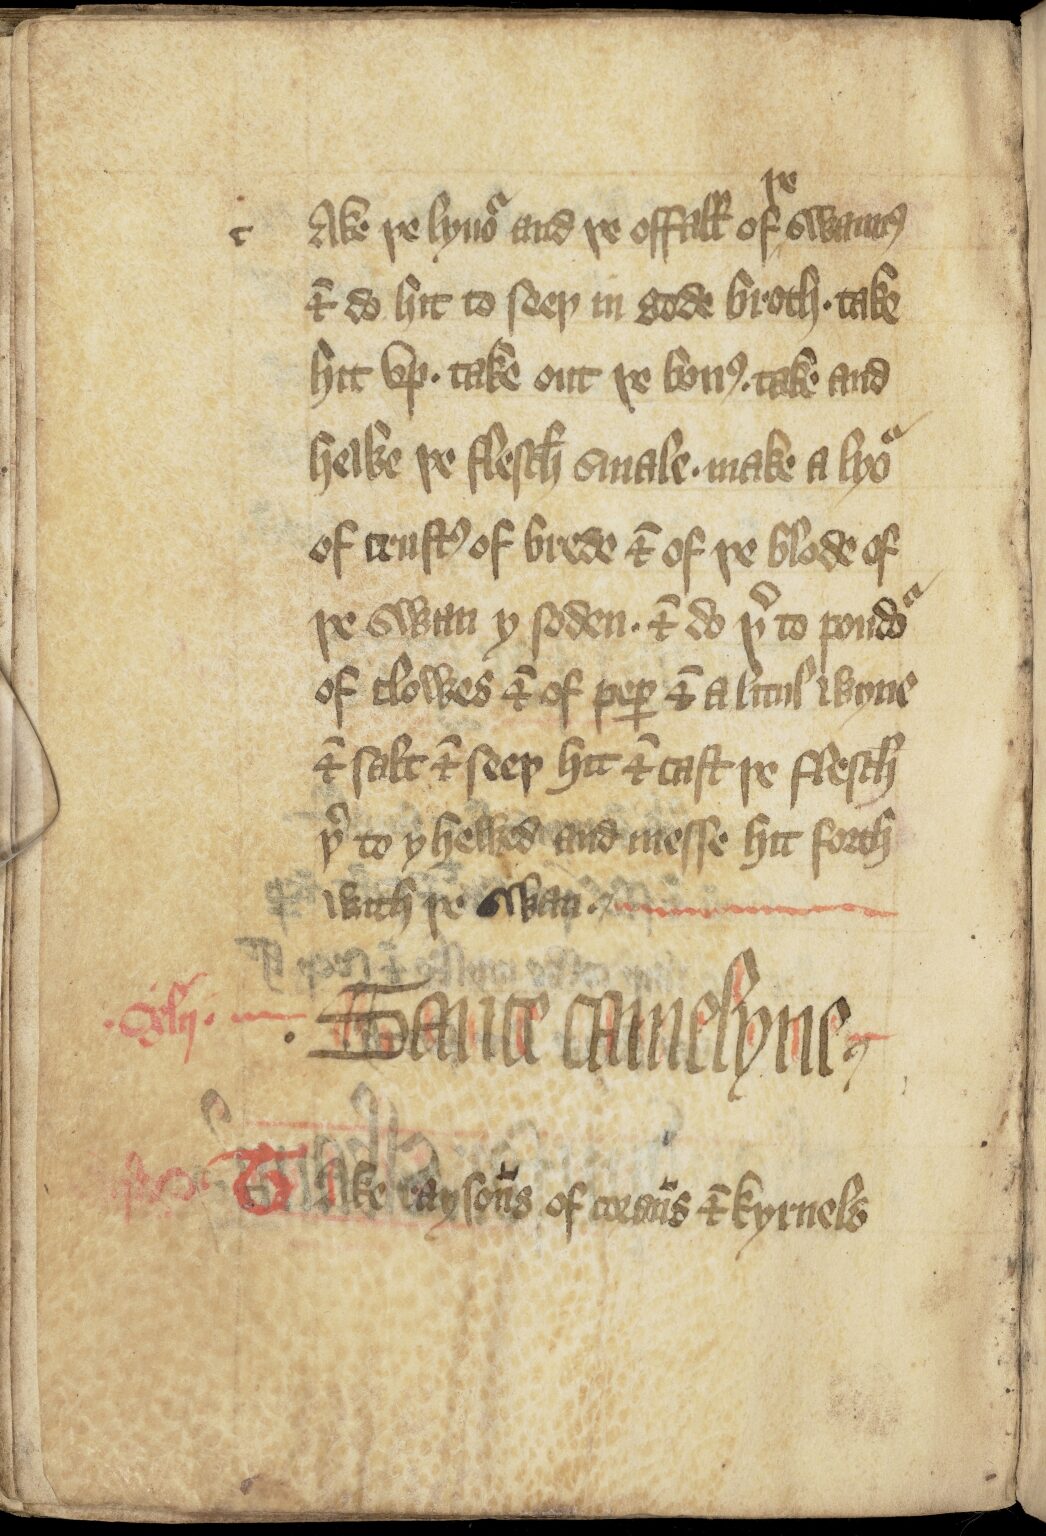 þe
t Ake þe lynoᵃ and þe offall of swannꝭ
⁊ do hit to seeþ in gode broth· take
hit vp· take out þe bonꝭ· take and
hewe þe flesch smale· make a lyoᵃ
of crustꝭ of brede ⁊ of þe blode of
þe swan y soden· ⁊ do þͬ to poudoᵃ
of clowes ⁊ of peꝑ ⁊ a litul wyne
⁊ salt ⁊ seeþ hit ⁊ cast þe flesch
þͬ to y hewed and messe hit forth
with þe swan·
·Cxlij· · Sauce camelyne
Take raysoūs of coraūs ⁊ kyrnels